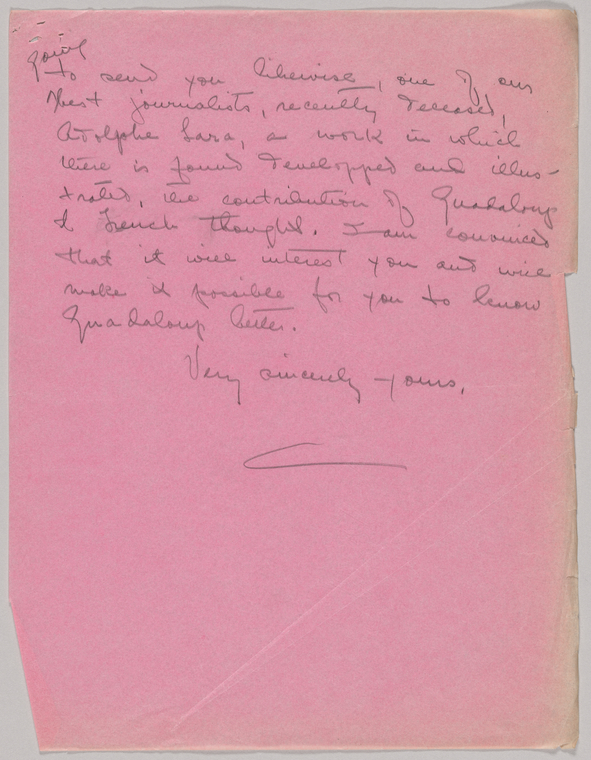 going
to send you likewise, one of our
best journalists, recently deceased,
Adolphe Lara, a work in which
there is found developped and illus-
trated, the contribution of Guadaloup
to French thought. I am convinced
that it will interest you and will
make it possible for you to know
Guadaloup better.
Very sincerely yours,